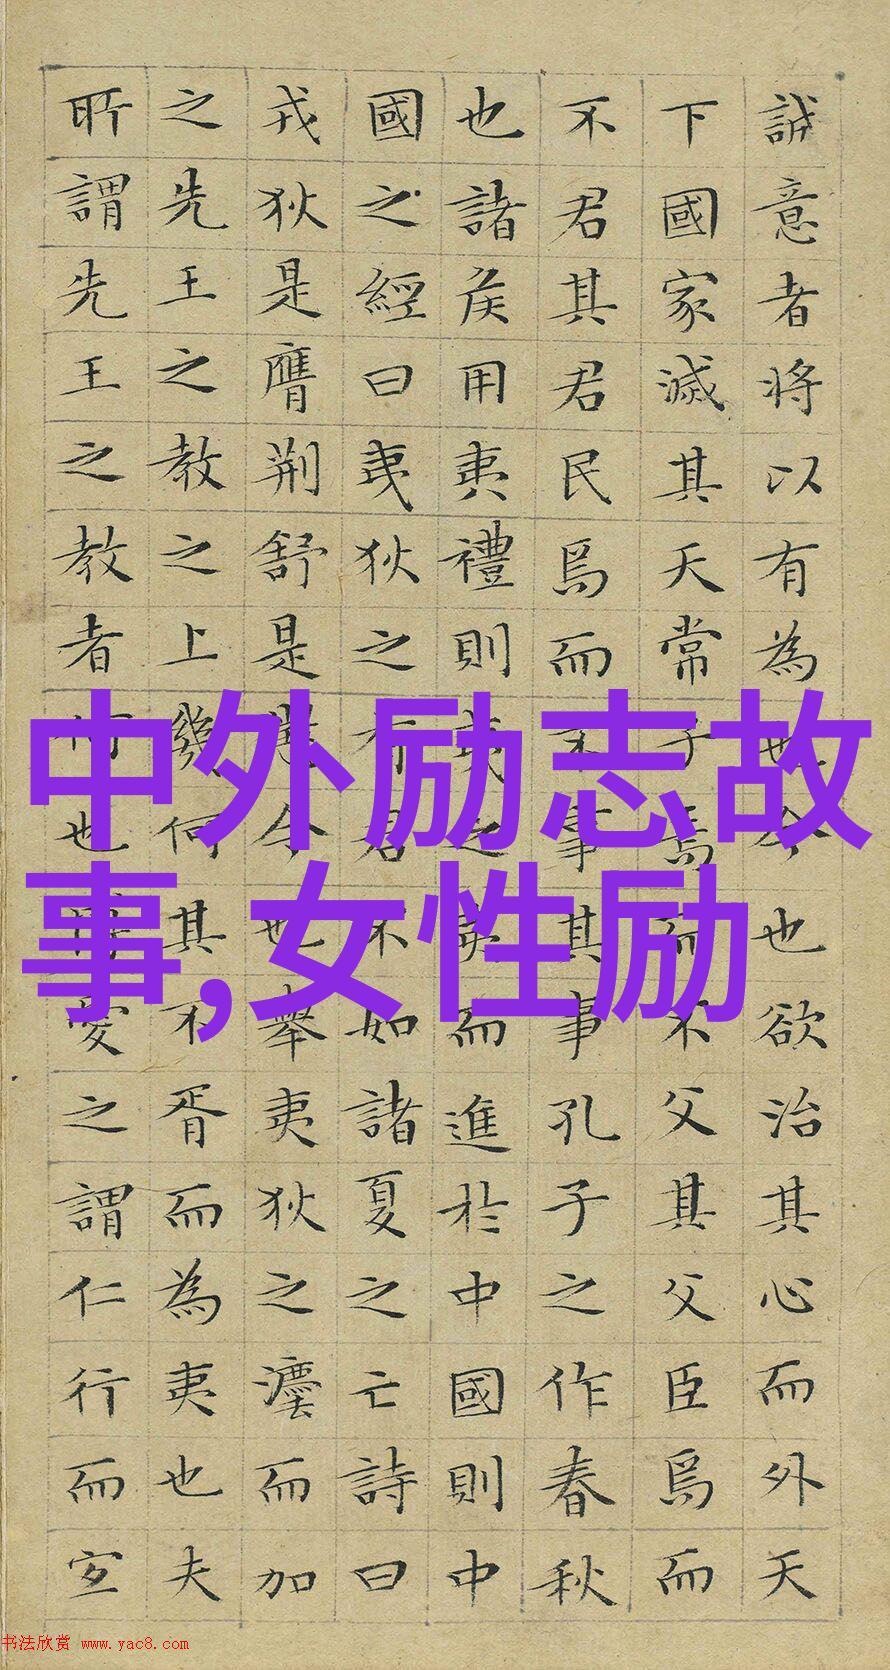 誠意者将以有為也今也欲治其心而外天
下國家滅其天常子焉而不父其父臣焉而
不君其君民焉而不事其事孔子之作春秋
也諸侯用夷禮則夷之夷而進於中國則中
國之經曰夷狄之有君不如諸夏之亡詩曰
戎狄是膺荆舒是懲今也舉夷狄之灋而加
之先王之教之上幾何其不胥而為夷也夫
所謂先王之教者何也博愛之謂仁行而宜
中外励志故
事,女性励
书法欣赏 www.yac8.com